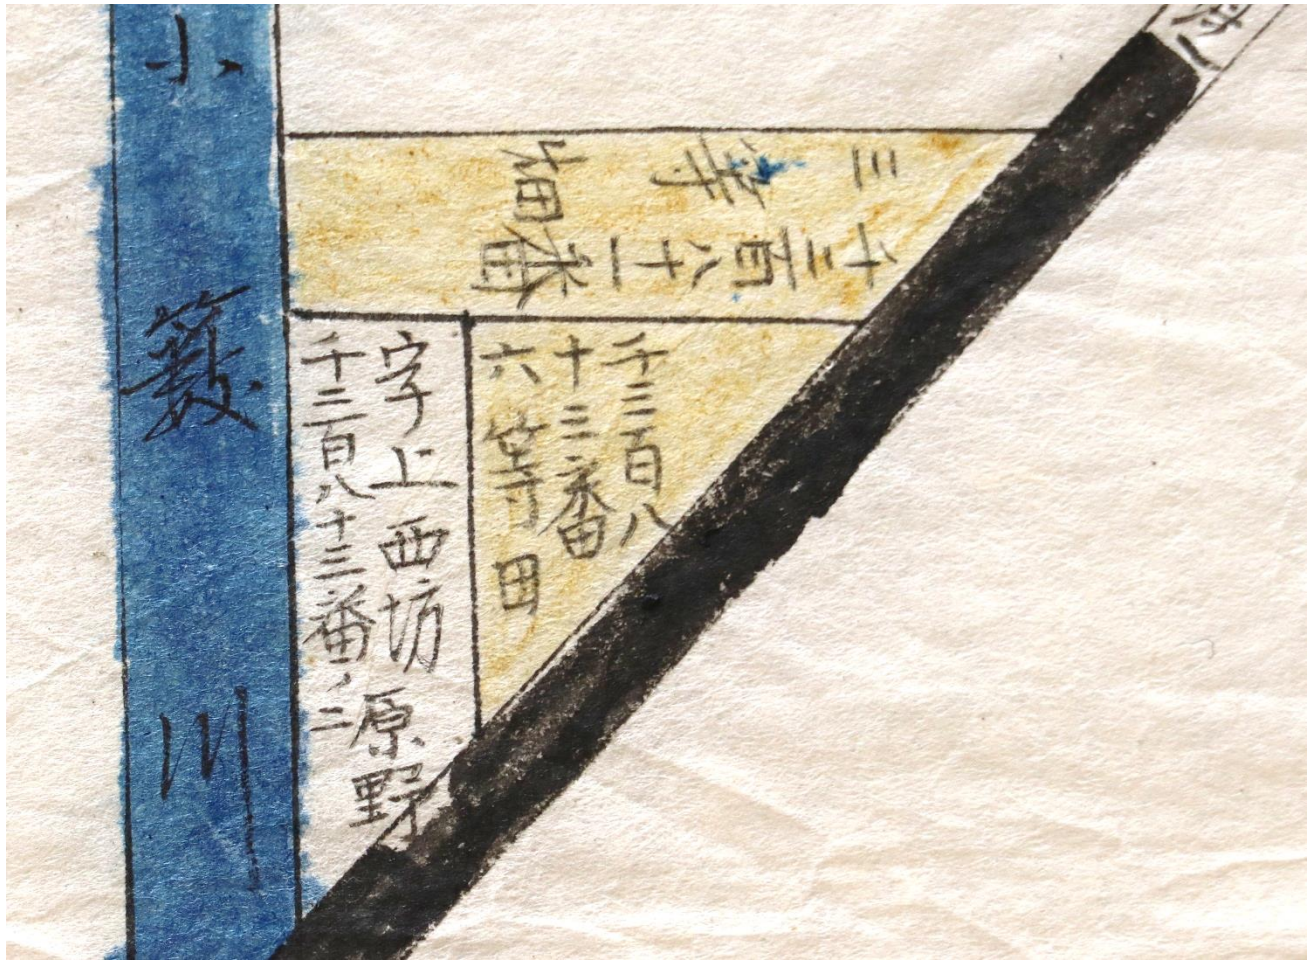 千三百八十一番
三等畑
千三百八
十三番
六等田
字上西坊 原野
千三百八十三番ノ二
小籔川